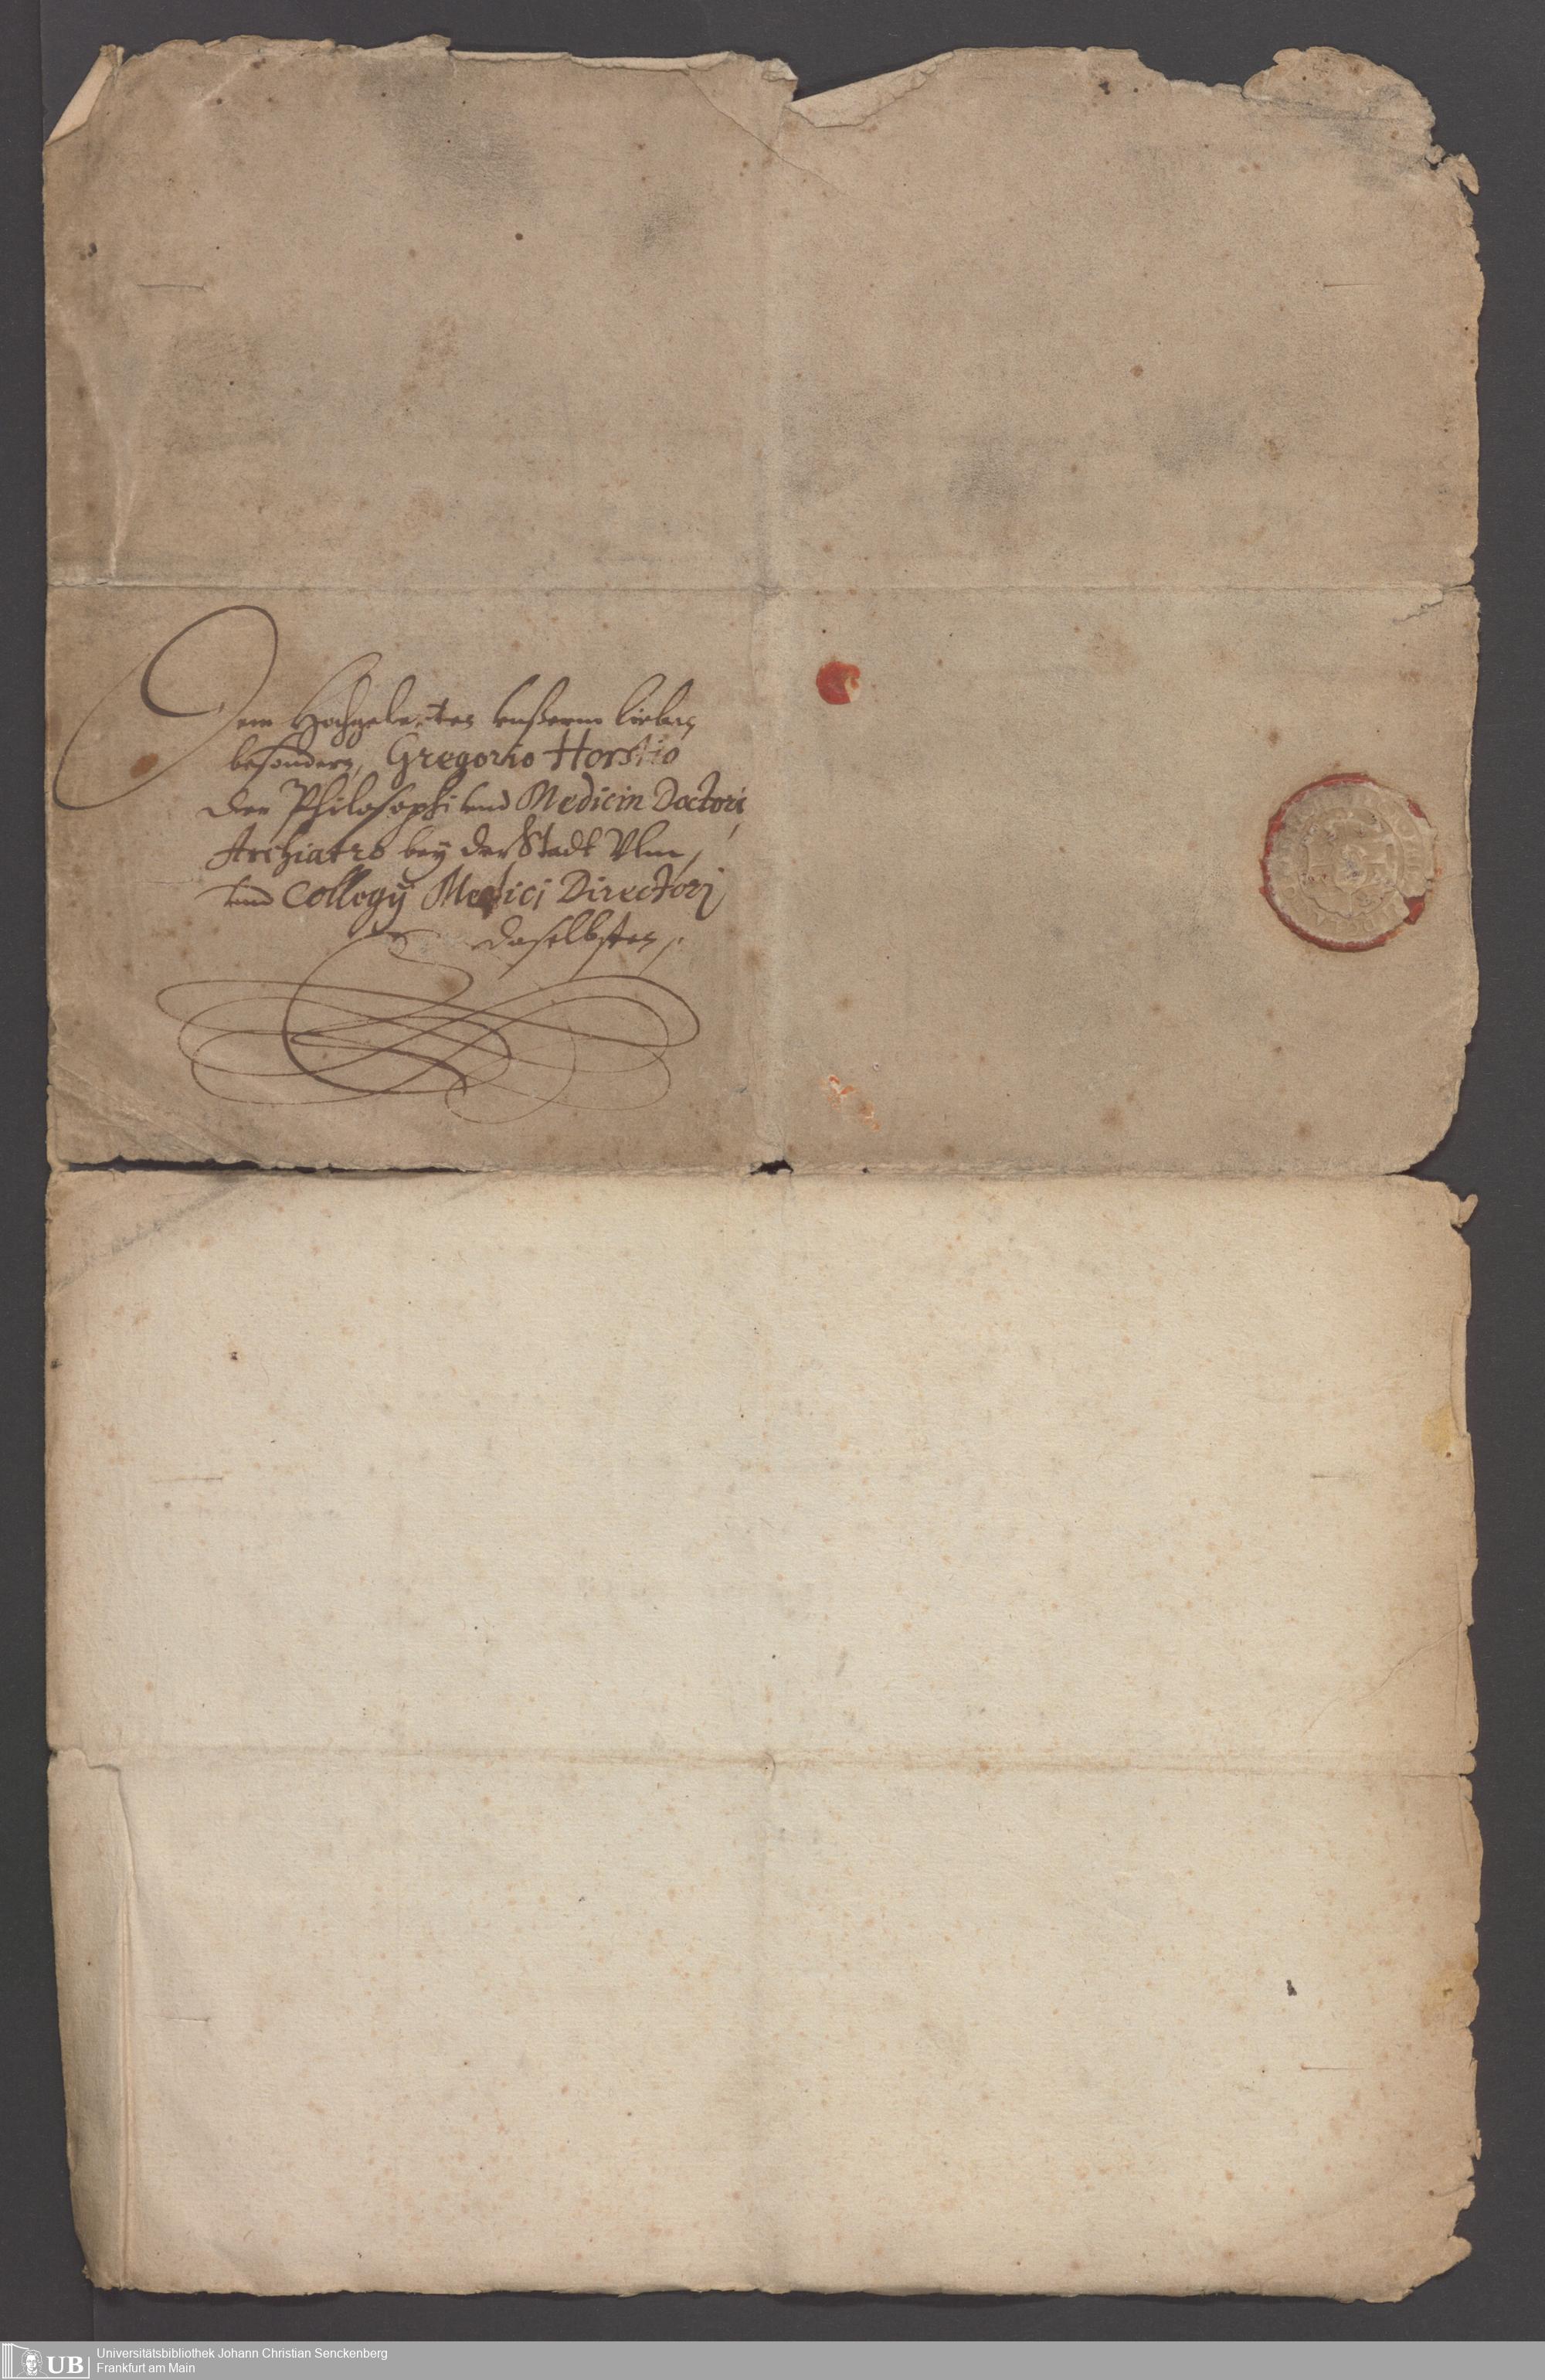 Dem Hochgelerten Vnßerm lieben
besondern, Gregorio Horstio
der Philosophi vnd Medicin Doctori,
Archiatro bey der Stadt Vlm,
vnd Collegij Medici Directori
daselbsten /.
UB
Universitätsbibliothek Johann Christian Senckenberg
Frankfurt am Main